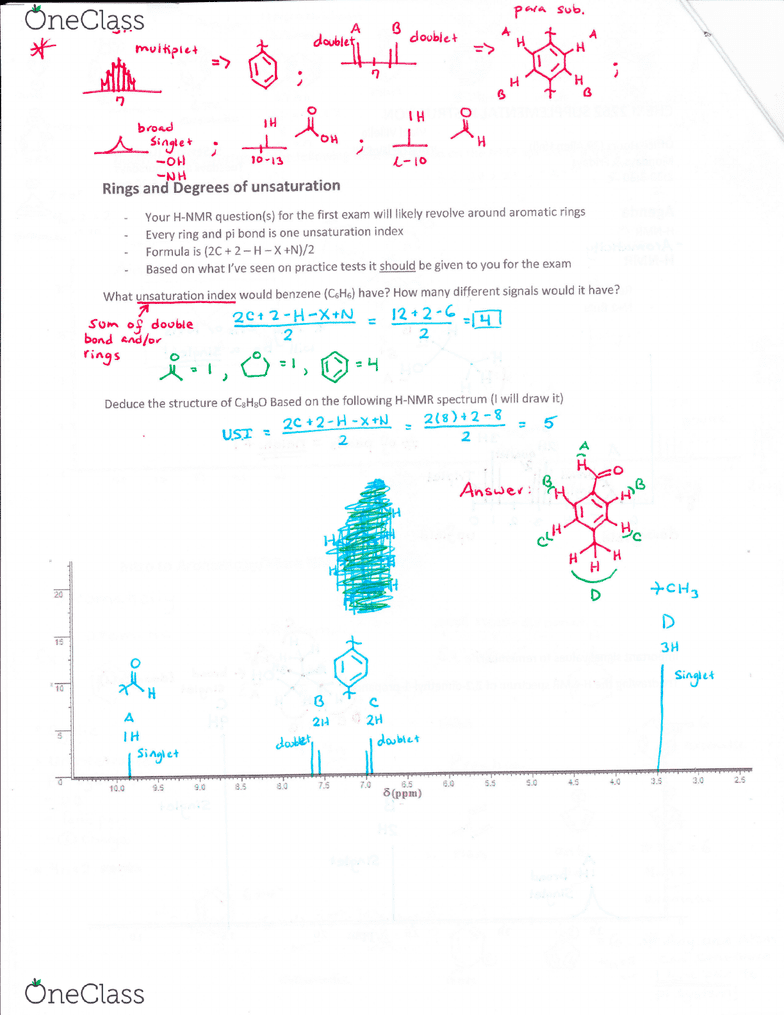 OneClass
para sub.
A B
multiplet => ; doublet doublet => A H H A ;
7 7
H H
B B
broad
singlet
-OH
-NH
; 1H O OH ; 1H O H
10-13 2-10
Rings and Degrees of unsaturation
- Your H-NMR question(s) for the first exam will likely revolve around aromatic rings
- Every ring and pi bond is one unsaturation index
- Formula is (2C + 2 – H – X +N)/2
- Based on what I've seen on practice tests it should be given to you for the exam
What unsaturation index would benzene (C₆H₆) have? How many different signals would it have?
Sum of double
bond and/or
rings
2C+2-H-X+N / 2 = 12+2-6 / 2 = 4
O = 1 , O = 1 , = 4
Deduce the structure of C₈H₈O Based on the following H-NMR spectrum (I will draw it)
USI = 2C+2-H-X+N / 2 = 2(8)+2-8 / 2 = 5
Answer:
A
H O
B H H B
C H H C
H H H
D
H H H H
CH3
D
3H
Singlet
O
H
A
1H
Singlet
B C
2H 2H
doublet doublet
20
15
10
5
0
10.0 9.5 9.0 8.5 8.0 7.5 7.0 6.5 6.0 5.5 5.0 4.5 4.0 3.5 3.0 2.5
δ(ppm)
OneClass